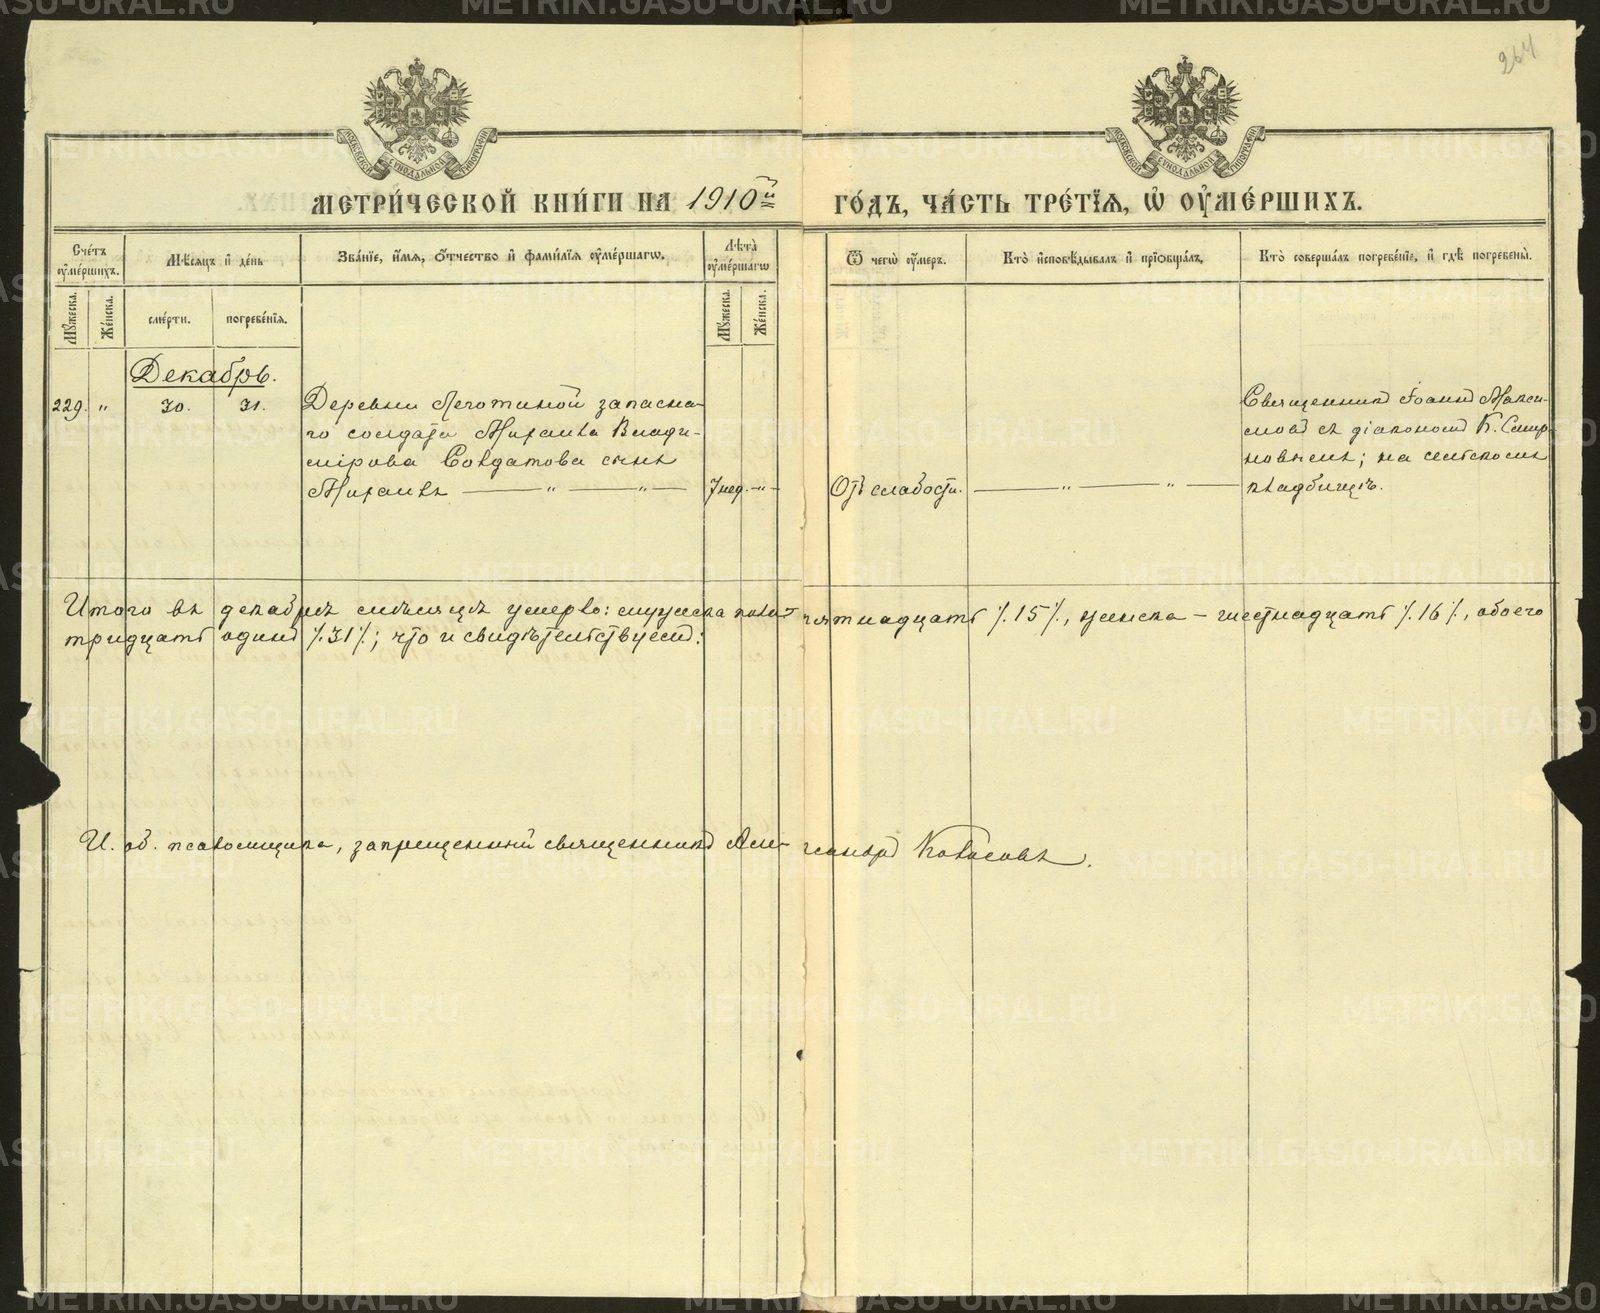 264
МОСКОВСКОЙ СѴНОДАЛЬНОЙ ТИПОГРАФІИ
МОСКОВСКОЙ СѴНОДАЛЬНОЙ ТИПОГРАФІИ
МЕТРИ́ЧЕСКОЙ КНИ́ГИ НА 1910й ГО́ДЪ, ЧА́СТЬ ТРЕ́ТІѦ, Ѡ҆ ОУ҆МЕ́РШИХЪ.
Сче́тъ оу҆ме́ршихъ.
Мꙋ́жеска.
Же́нска.
Мѣ́сѧцъ и҆ де́нь
сме́рти.
погребе́нїѧ.
Зва́нїе, и҆́мѧ, ѻ҆́тчество и҆ фами́лїѧ оу҆ме́ршагѡ.
Лѣ̀та оу҆ме́ршагѡ
Мꙋ́жеска.
Же́нска.
Ѿ чегѡ̀ оу҆́меръ.
Кто̀ и҆сповѣ́дывалъ и҆ прїѻбща́лъ.
Кто̀ соверша́лъ погребе́нїе, и҆ гдѣ̀ погребены̀.
Декабрь.
229. " 30. 31. Деревни запасна-
го солдата Михаила Влади-
мірова Солдатова сынъ
Михаилъ — " — " — 7 нед. - " - Отъ слабости. — " — " —
Священникъ Іоаннъ Макси-
мовъ съ діакономъ К. Смир-
новымъ; на сельскомъ
кладбищѣ.
Итого въ декабрѣ мѣсяцѣ умерло: мужска пола - пятнадцать /.15/., женска - шестнадцать /.16/., обоего
тридцать одинъ /.31/.; что и свидѣтельствуемъ:
И. об. псаломщика, запрещенный священникъ Алек-сандръ
METRIKI.GASO-URAL.RU